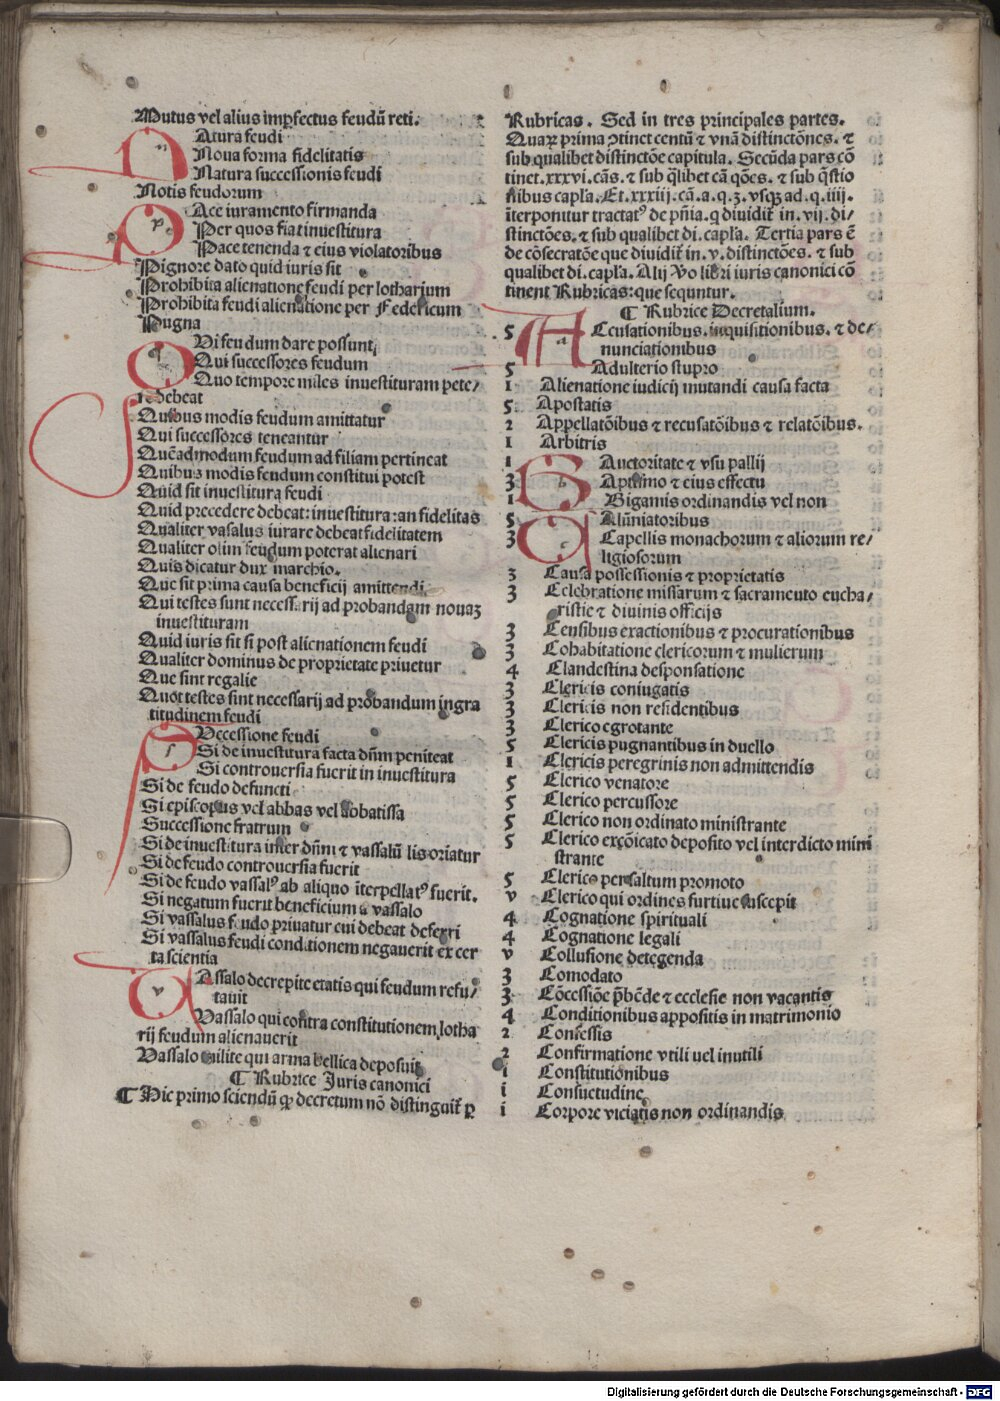 Mutus vel alius imꝑfectus feudū reti.
NAtura feudi
Noua forma fidelitatis
Natura successionis feudi
Notis feudorum
PAce iuramento firmanda
Per quos fiat inuestitura
Pace tenenda ⁊ eius violatoribus
Pignore dato quid iuris sit
Prohibita alienatione feudi per lotharium
Prohibita feudi alienatione per Federicum
Pugna
QUi feudum dare possunt
Qui successores feudum
Quo tempore miles inuestituram pete/
re debeat
Quibus modis feudum amittatur
Qui successores teneantur
Quēadmodum feudum ad filiam pertineat
Quibus modis feudum constitui potest
Quid sit inuestitura feudi
Quid precedere debeat: inuestitura: an fidelitas
Qualiter vasalus iurare debeat fidelitatem
Qualiter olim feudum poterat alienari
Quis dicatur dux marchio.
Que sit prima causa beneficij amittendi
Qui testes sunt necessarij ad probandam nouaꝫ
inuestituram
Quid iuris sit si post alienationem feudi
Qualiter dominus de proprietate priuetur
Que sint regalie
Quot testes sint necessarij ad probandum ingra
titudinem feudi
SUccessione feudi
Si de inuestitura facta dn̄m peniteat
Si controuersia fuerit in inuestitura
Si de feudo defuncti
Si episcopus vel abbas vel abbatissa
Successione fratrum
Si de inuestitura inter dn̄m ⁊ vassalū lis oriatur
Si de feudo controuersia fuerit
Si de feudo vassalꝰ ab aliquo īterpellatꝰ fuerit.
Si negatum fuerit beneficium a vassalo
Si vassalus feudo priuatur cui debeat deferri
Si vassalus feudi conditionem negauerit ex cer
ta scientia
VAssalo decrepite etatis qui feudum refu/
tauit
Vassalo qui contra constitutionem lotha
rij feudum alienauerit
Vassalo milite qui arma bellica deposuit
¶ Rubrice Juris canonici
¶ Hic primo sciendū ꝙ decretum nō distinguit̄ ꝑ
Rubricas. Sed in tres principales partes.
Quaꝝ prima ꝯtinet centū ⁊ vnā distinctōnes. ⁊
sub qualibet distinctōe capitula. Secūda pars cō
tinet.xxxvi.cās. ⁊ sub q̄libet cā qōes. ⁊ sub q̄stio
nibus capl̄a. Et.xxxiij.cā.a.q.ꝫ.vsqꝫ ad.q.iiij.
īterponitur tractatꝰ de pn̄ia. q diuidit̄ in.vij.di/
stinctōes. ⁊ sub qualibet di.capl̄a. Tertia pars ē
de cōsecratōe que diuidit̄ in.v.distinctōes. ⁊ sub
qualibet di.capl̄a. Alij v̄o libri iuris canonici cō
tinent Rubricas: que sequntur.
¶ Rubrice Decretalium.
5 ACcusationibus. inquisitionibus. ⁊ de/
nunciationibus
5 Adulterio stupro
1 Alienatione iudicij mutandi causa facta
5 Apostatis
2 Appellatōibus ⁊ recusatōibus ⁊ relatōibus.
1 Arbitris
1 Auctoritate ⁊ vsu pallij
3 BAptismo ⁊ eius effectu
1 Bigamis ordinandis vel non
5 CAlūniatoribus
3 Capellis monachorum ⁊ aliorum re/
ligiosorum
3 Causa possessionis ⁊ proprietatis
3 Celebratione missarum ⁊ sacramento eucha/
ristie ⁊ diuinis officijs
3 Censibus exactionibus ⁊ procurationibus
3 Cohabitatione clericorum ⁊ mulierum
4 Clandestina desponsatione
3 Clericis coniugatis
3 Clericis non residentibus
3 Clerico egrotante
5 Clericis pugnantibus in duello
1 Clericis peregrinis non admittendis
5 Clerico venatore
5 Clerico percussore
5 Clerico non ordinato ministrante
5 Clerico excōicato deposito vel interdicto mini
strante
5 Clerico per saltum promoto
v Clerico qui ordines furtiue suscepit
4 Cognatione spirituali
4 Cognatione legali
v Collusione detegenda
3 Comodato
3 Cōcessiōe p̄bēde ⁊ ecclesie non vacantis
4 Conditionibus appositis in matrimonio
2 Confessis
2 Confirmatione vtili uel inutili
i Constitutionibus
i Consuetudine
i Corpore viciatis non ordinandis
Digitalisierung gefördert durch die Deutsche Forschungsgemeinschaft - DFG